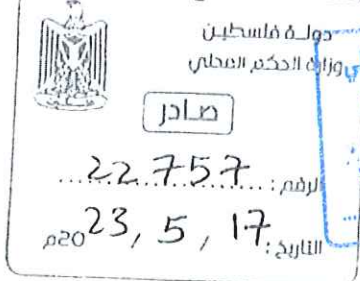 دولـة فلسطين
وزارة الحكم المحلي
صادر
الرقم: 22757
التاريخ: 17 , 5 , 2023م